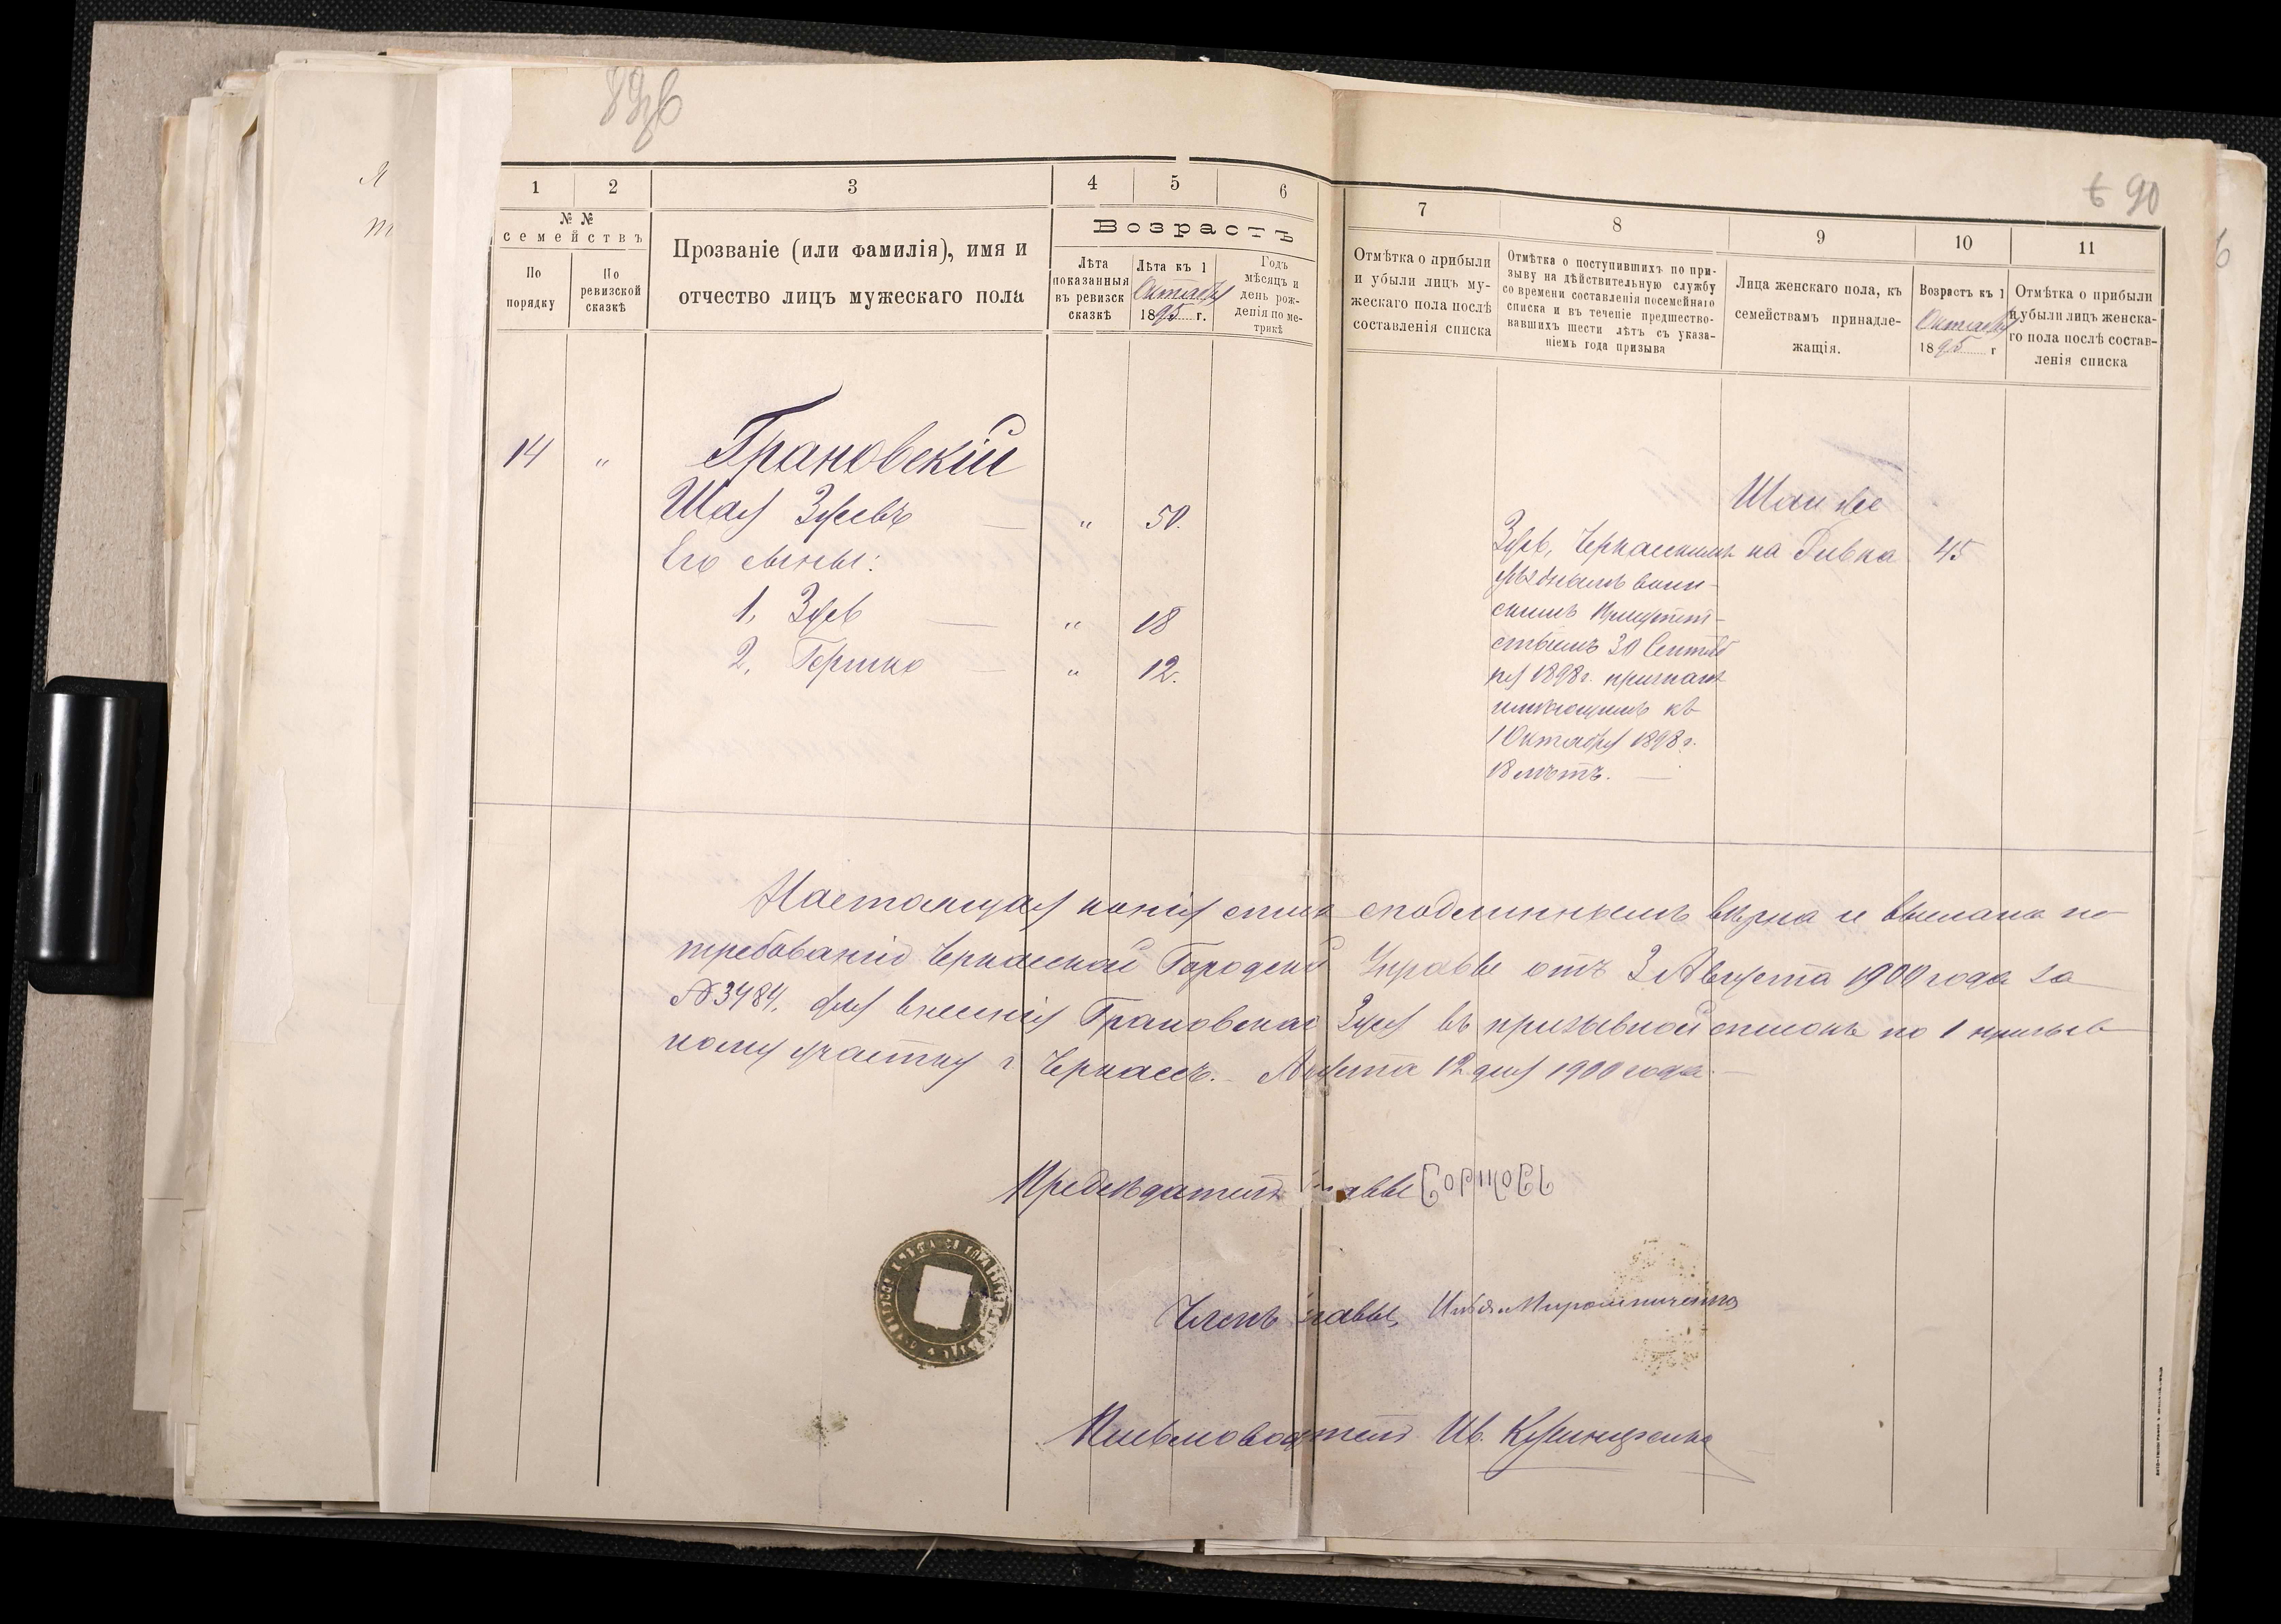 М
т
89об
90
6
1
2
3
4
5
6
7
8
9
10
11
№ №
семействъ
По
порядку
По
ревизской
сказкѣ
Прозваніе (или фамилія), имя и
отчество лицъ мужескаго пола
Возрастъ
Лѣта
показанныя
въ ревизск
сказкѣ
Лѣта къ 1
Октября
1895 г.
Годъ
мѣсяцъ и
день рож-
денія по ме-
трикѣ
Отмѣтка о прибыли
и убыли лицъ му-
жескаго пола послѣ
составленія списка
Отмѣтка о поступившихъ по при-
зыву на дѣйствительную службу
со времени составленія посемейнаго
списка и въ теченіе предшество-
вавшихъ шести лѣтъ съ указа-
ніемъ года призыва
Лица женскаго пола, къ
семействамъ принадле-
жащія.
Возрастъ къ 1
Октября
1895 г
Отмѣтка о прибыли
и убыли лицъ женска-
го пола послѣ состав-
ленія списка
14 „ Грановскій
Шая Зусевъ — „ 50.
Его сыны:
1, Зусь — „ 18
2, Гершко — „ 12.
Зусь, Черкаскимъ
уѣзднымъ воин-
скимъ Присут-
ствіемъ 30 Сентяб
ря 1898 г. признанъ
имѣющимъ къ
1 Октября 1898 г.
18 лѣтъ. —
Шаи же
на Ривка 45
Настоящая копія спис сподлиннымъ вѣрна и выслана по
требованію Черкасской Городской Управы отъ 3 Августа 1900 года за
№ 3484, для внесенія Грановскаго Зуся въ призывной списокъ по 1 призыв
ному участку г. Черкассъ. Августа 12 дня 1900 года. —
Предсѣдатель авы
Членъ авы, Мирошниченко
Письмоводитель Ив.